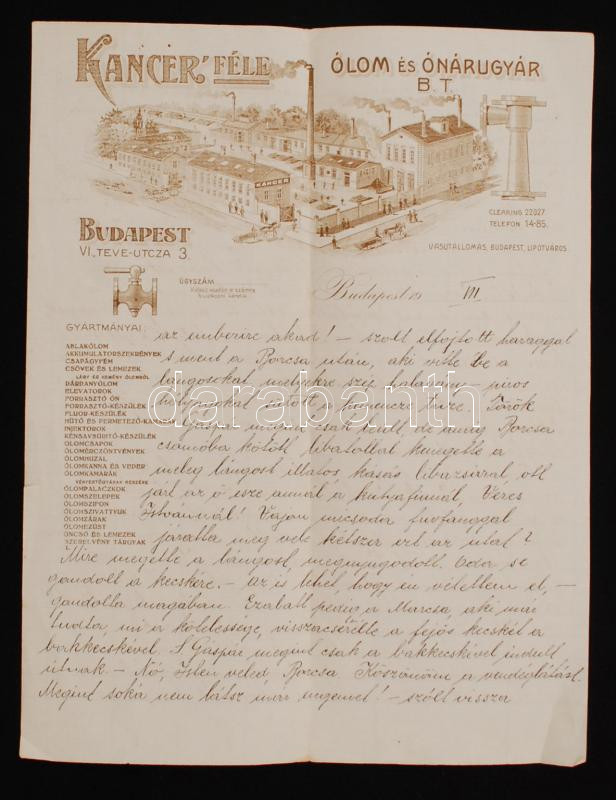 KANCER' FÉLE
ÓLOM ÉS ÓNÁRUGYÁR
B.T.
KANCER
CLEARING 22027
TELEFON 14-85.
BUDAPEST
VI., TEVE-UTCZA 3.
VASUTÁLLOMÁS, BUDAPEST, LIPÓTVÁROS.
ÜGYSZÁM
Budapest 19 VII
GYÁRTMÁNYAI:
ABLAKÓLOM
AKKUMULATORSZEKRÉNYEK
CSAPÁGYFÉM
CSÖVEK ÉS LEMEZEK
LÁGY ÉS KEMÉNY ÓLOMBÓL
DARRANYÓLOM
ELEVATOROK
FORRASZTÓ ÓN
FORRASZTÓ-KÉSZÜLÉK
FLUOR-KÉSZÜLÉK
HŰTŐ ÉS PERMETEZŐ-KAMRÁK
INJEKTOROK
KÉNSAVSŰRÍTŐ-KÉSZÜLÉK
ÓLOMCSAPOK
ÓLOMÉRCZÖNTVÉNYEK
ÓLOMHUZAL
ÓLOMKANNA ÉS VEDER
ÓLOMKAMARÁK
ÓLOMPALACZKOK
ÓLOMSZELEPEK
ÓLOMSZIFON
ÓLOMSZIVATTYUK
ÓLOMZÁRAK
ÓLOMEZÜST
ÓNCSŐ ÉS LEMEZEK
SZERELVÉNY TÁRGYAK
az emberire akad! – szólt elfojtott haraggal
s ment a Borcsa után, aki vitte be a
lángosokat, melyekre szép halavány-piros
a kemencze tüze. Török
Gáspár megint csak leült, de amíg Borcsa
csomóba kötött libatollal kenegette a
meleg lángost illatos kásás libazsírral, ott
járt az ő esze annál a kutyafiunál Veres
Istvánnál! Vajon micsoda furfanggal
járatta meg vele kétszer ezt az utat?
Mire megette a lángost, megnyugodott. Oda se
gondolt a kecskére. – Az is lehet, hogy én vétettem el, –
gondolta magában. Ezalatt pedig a Marcsa, aki már
tudta, mi a kötelessége, visszacserélte a fejős kecskét a
bakkecskével. S Gáspár megint csak a bakkecskével indult
útnak. – Nó, Isten veled, Borcsa. Köszönöm a vendéglátást.
Megint soká nem látsz már engemet! – szólt vissza
darabanth